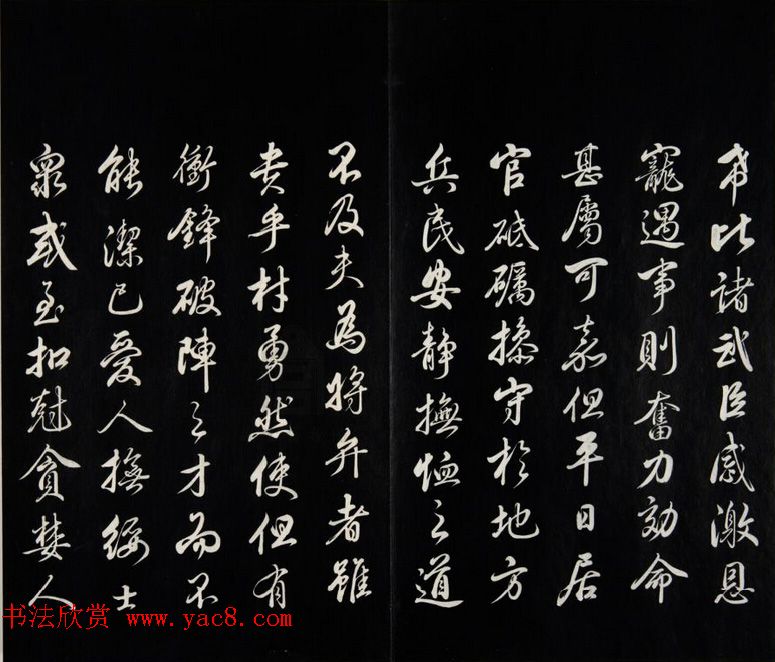 木比諸武臣感激恩
寵遇事則奮力効命
甚屬可嘉但平日居
官砥礪操守於地方
兵民安靜撫恤之道
不及夫為將弁者雖
貴乎材勇然使但有
衝鋒破陣之才而不
能潔己愛人撫綏士
衆或至扣尅貪婪人
书法欣赏 www.yac8.com